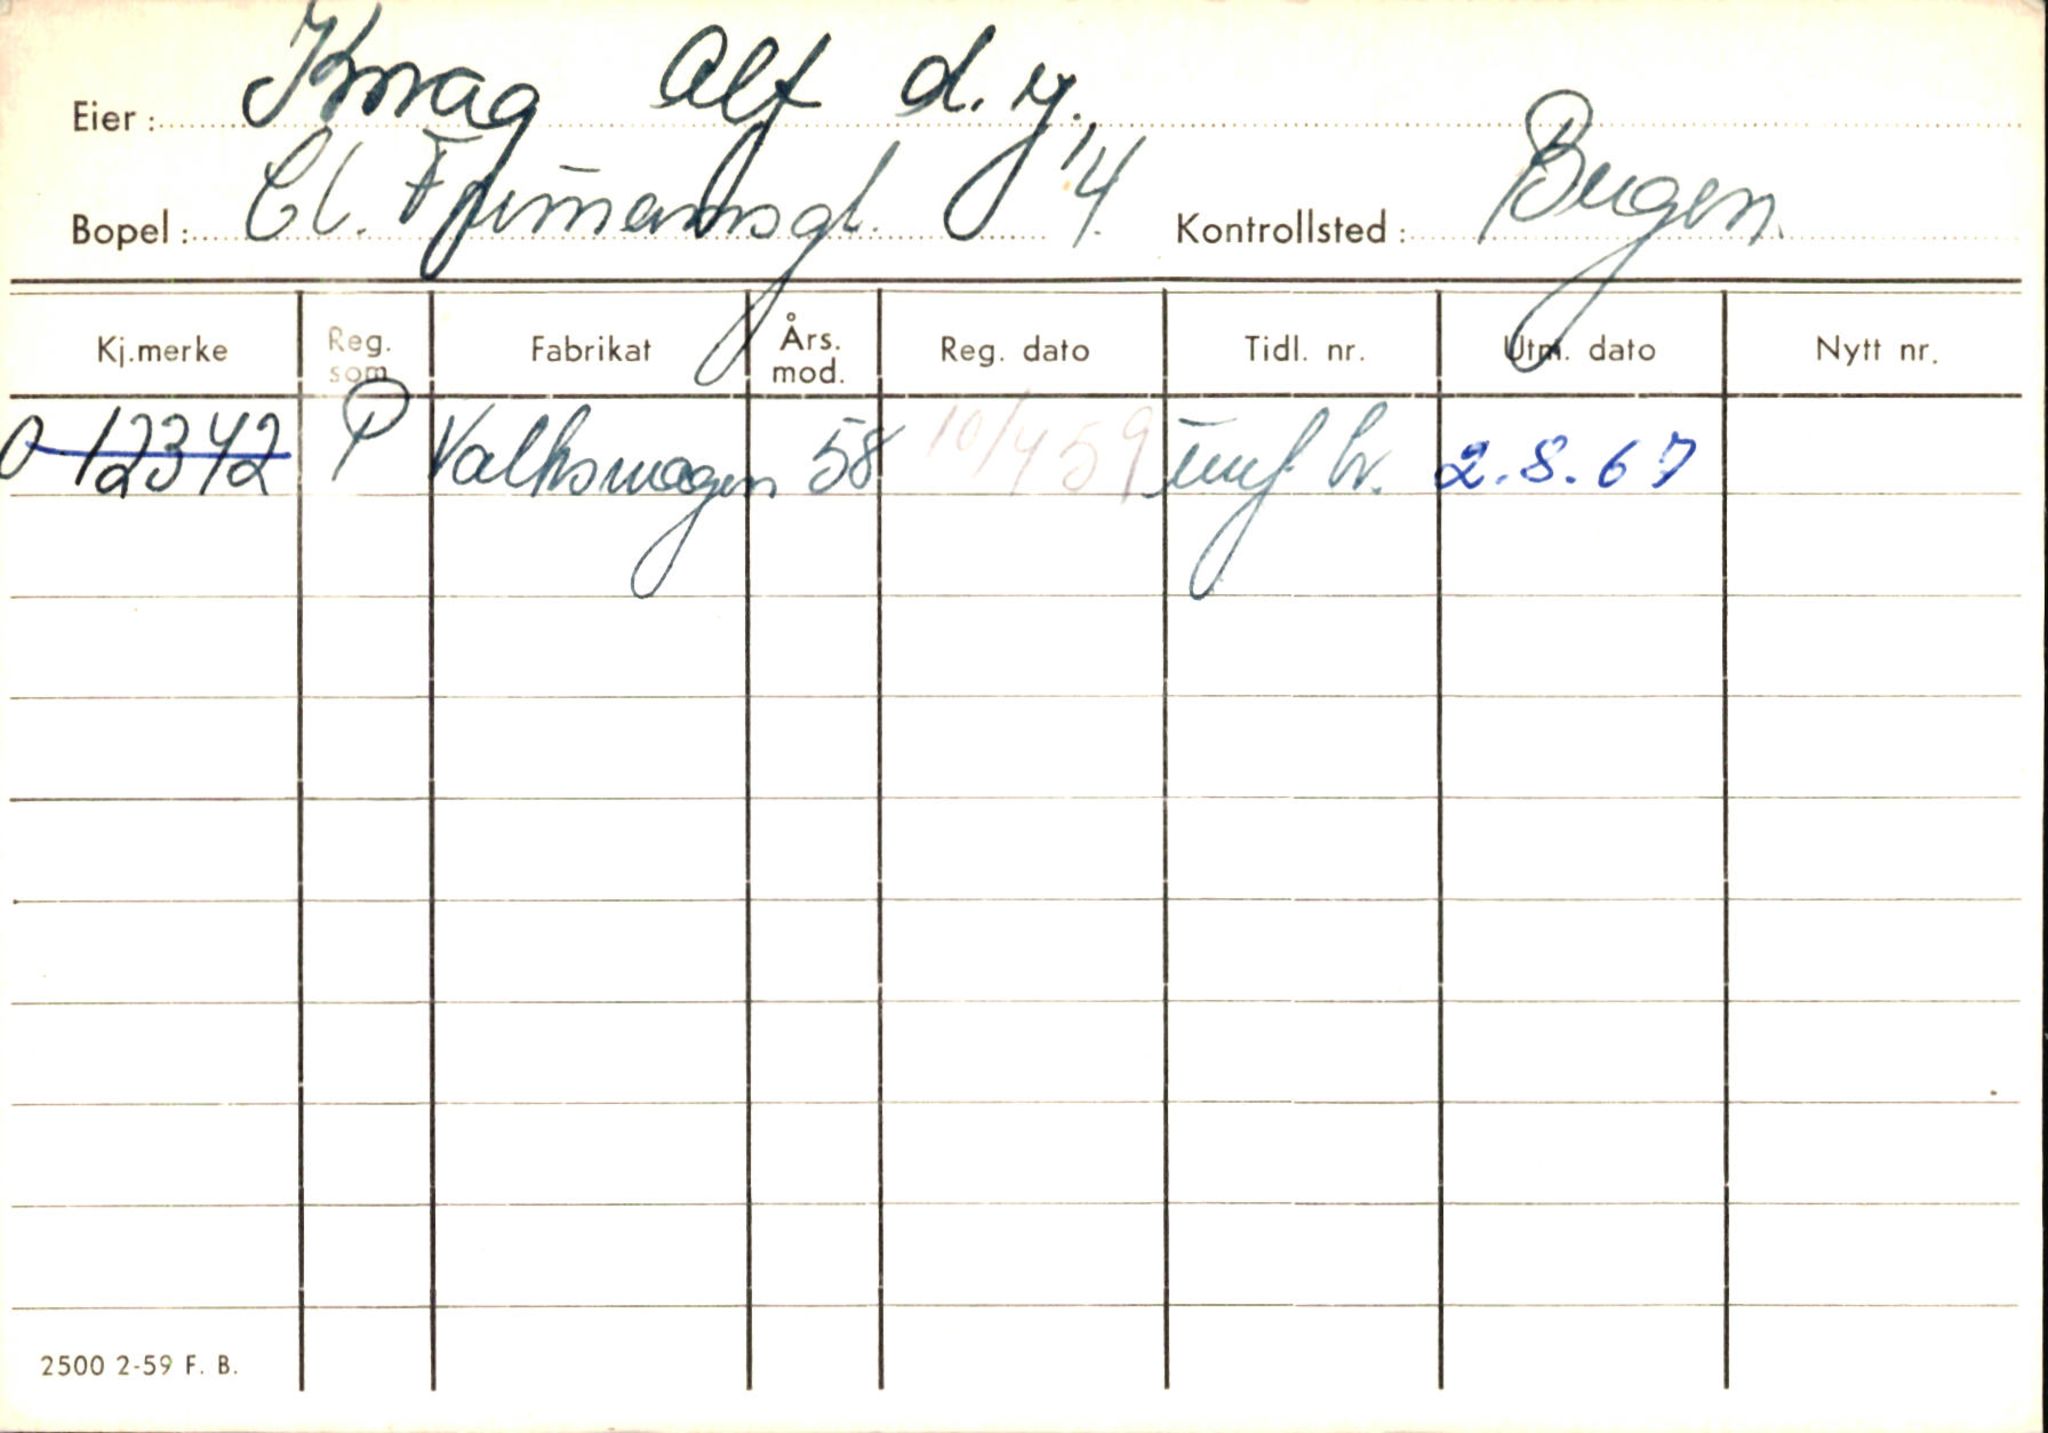 Eier: Knag Alf d. y.
Bopel: Cl. Frimannsgt. 14 Kontrollsted: Bergen
Kj.merke Reg. som Fabrikat Års. mod. Reg. dato Tidl. nr. Utm. dato Nytt nr.
O-12342 P Valkswagen 58 10/4 59 2.8.67
2500 2-59 F. B.